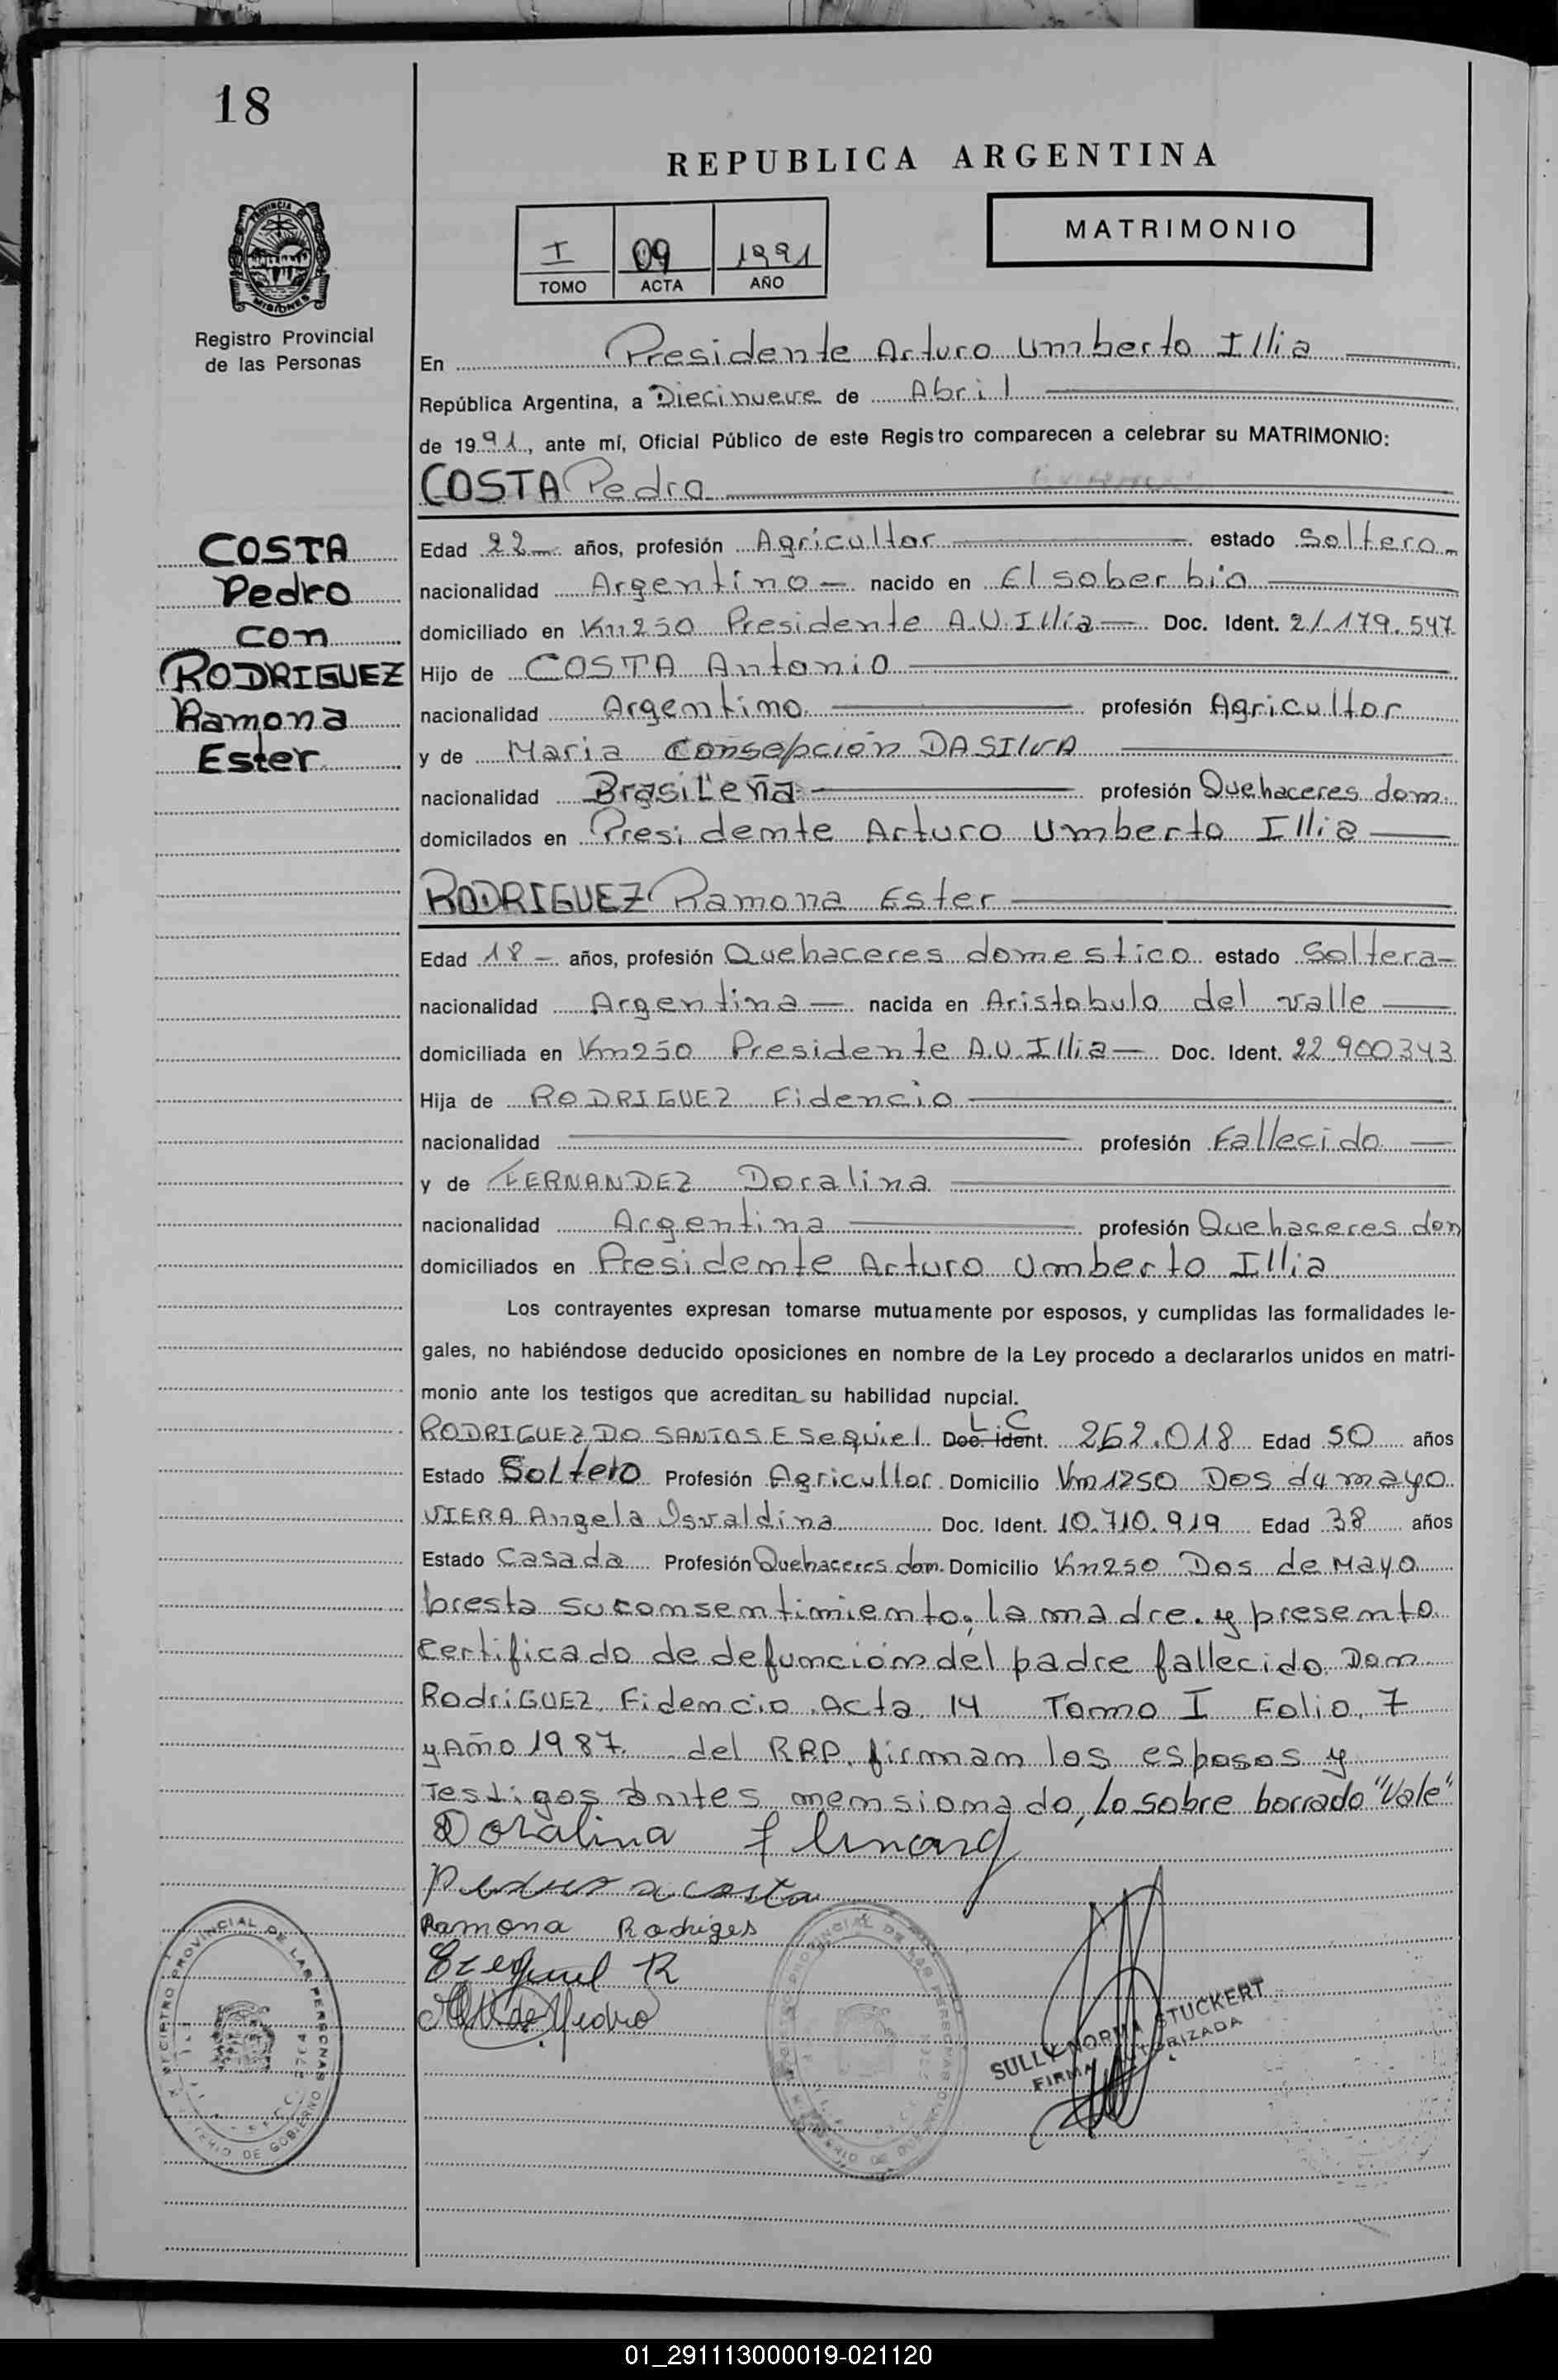 18
REPUBLICA ARGENTINA
MATRIMONIO
I 09 1991
TOMO ACTA AÑO
PROVINCIA DE
MISIONES
Registro Provincial
de las Personas
En Presidente Arturo Umberto Illia
República Argentina, a Diecinueve de Abril
de 1991, ante mí, Oficial Público de este Registro comparecen a celebrar su MATRIMONIO:
COSTA Pedro
COSTA
Pedro
con
RODRIGUEZ
Ramona
Ester
Edad 22 años, profesión Agricultor estado Soltero
nacionalidad Argentino nacido en El soberbio
domiciliado en Km250 Presidente A.U.Illia Doc. Ident. 21.179.547
Hijo de COSTA Antonio
nacionalidad Argentino profesión Agricultor
y de Maria Consepción DASILVA
nacionalidad Brasileña profesión Quehaceres dom.
domicilados en Presidente Arturo Umberto Illia
RODRIGUEZ Ramona Ester
Edad 18 años, profesión Quehaceres domestico estado Soltera
nacionalidad Argentina nacida en Aristobulo del valle
domiciliada en Km250 Presidente A.U.Illia Doc. Ident. 22.900343
Hija de RODRIGUEZ Fidencio
nacionalidad profesión Fallecido
y de FERNANDEZ Doralina
nacionalidad Argentina profesión Quehaceres dom
domiciliados en Presidente Arturo Umberto Illia
Los contrayentes expresan tomarse mutuamente por esposos, y cumplidas las formalidades le-
gales, no habiéndose deducido oposiciones en nombre de la Ley procedo a declararlos unidos en matri-
monio ante los testigos que acreditan su habilidad nupcial.
RODRIGUEZ DO SANTOS ESequiel L.C Doc. Ident. 262.018 Edad 50 años
Estado Soltero Profesión Agricultor Domicilio Km1250 Dos de mayo
VIERA Angela Osvaldina Doc. Ident. 10.710.919 Edad 38 años
Estado Casada Profesión Quehaceres dom. Domicilio Km250 Dos de Mayo
presta su comsentimiento, la madre y presento
certificado de defunción del padre fallecido Don
RodriGUEZ Fidencio Acta 14 Tomo I Folio 7
y Año 1987 del RPP. firman los esposos y
Testigos antes mensionado, Lo sobre borrado "Vale"
Doralina f
Pedro a costa
Ramona Rodriges
Ezequiel R
SULLY NORMA STUCKERT
FIRMA AUTORIZADA
REGISTRO PROVINCIAL DE LAS PERSONAS
MINISTERIO DE GOBIERNO
01_291113000019-021120